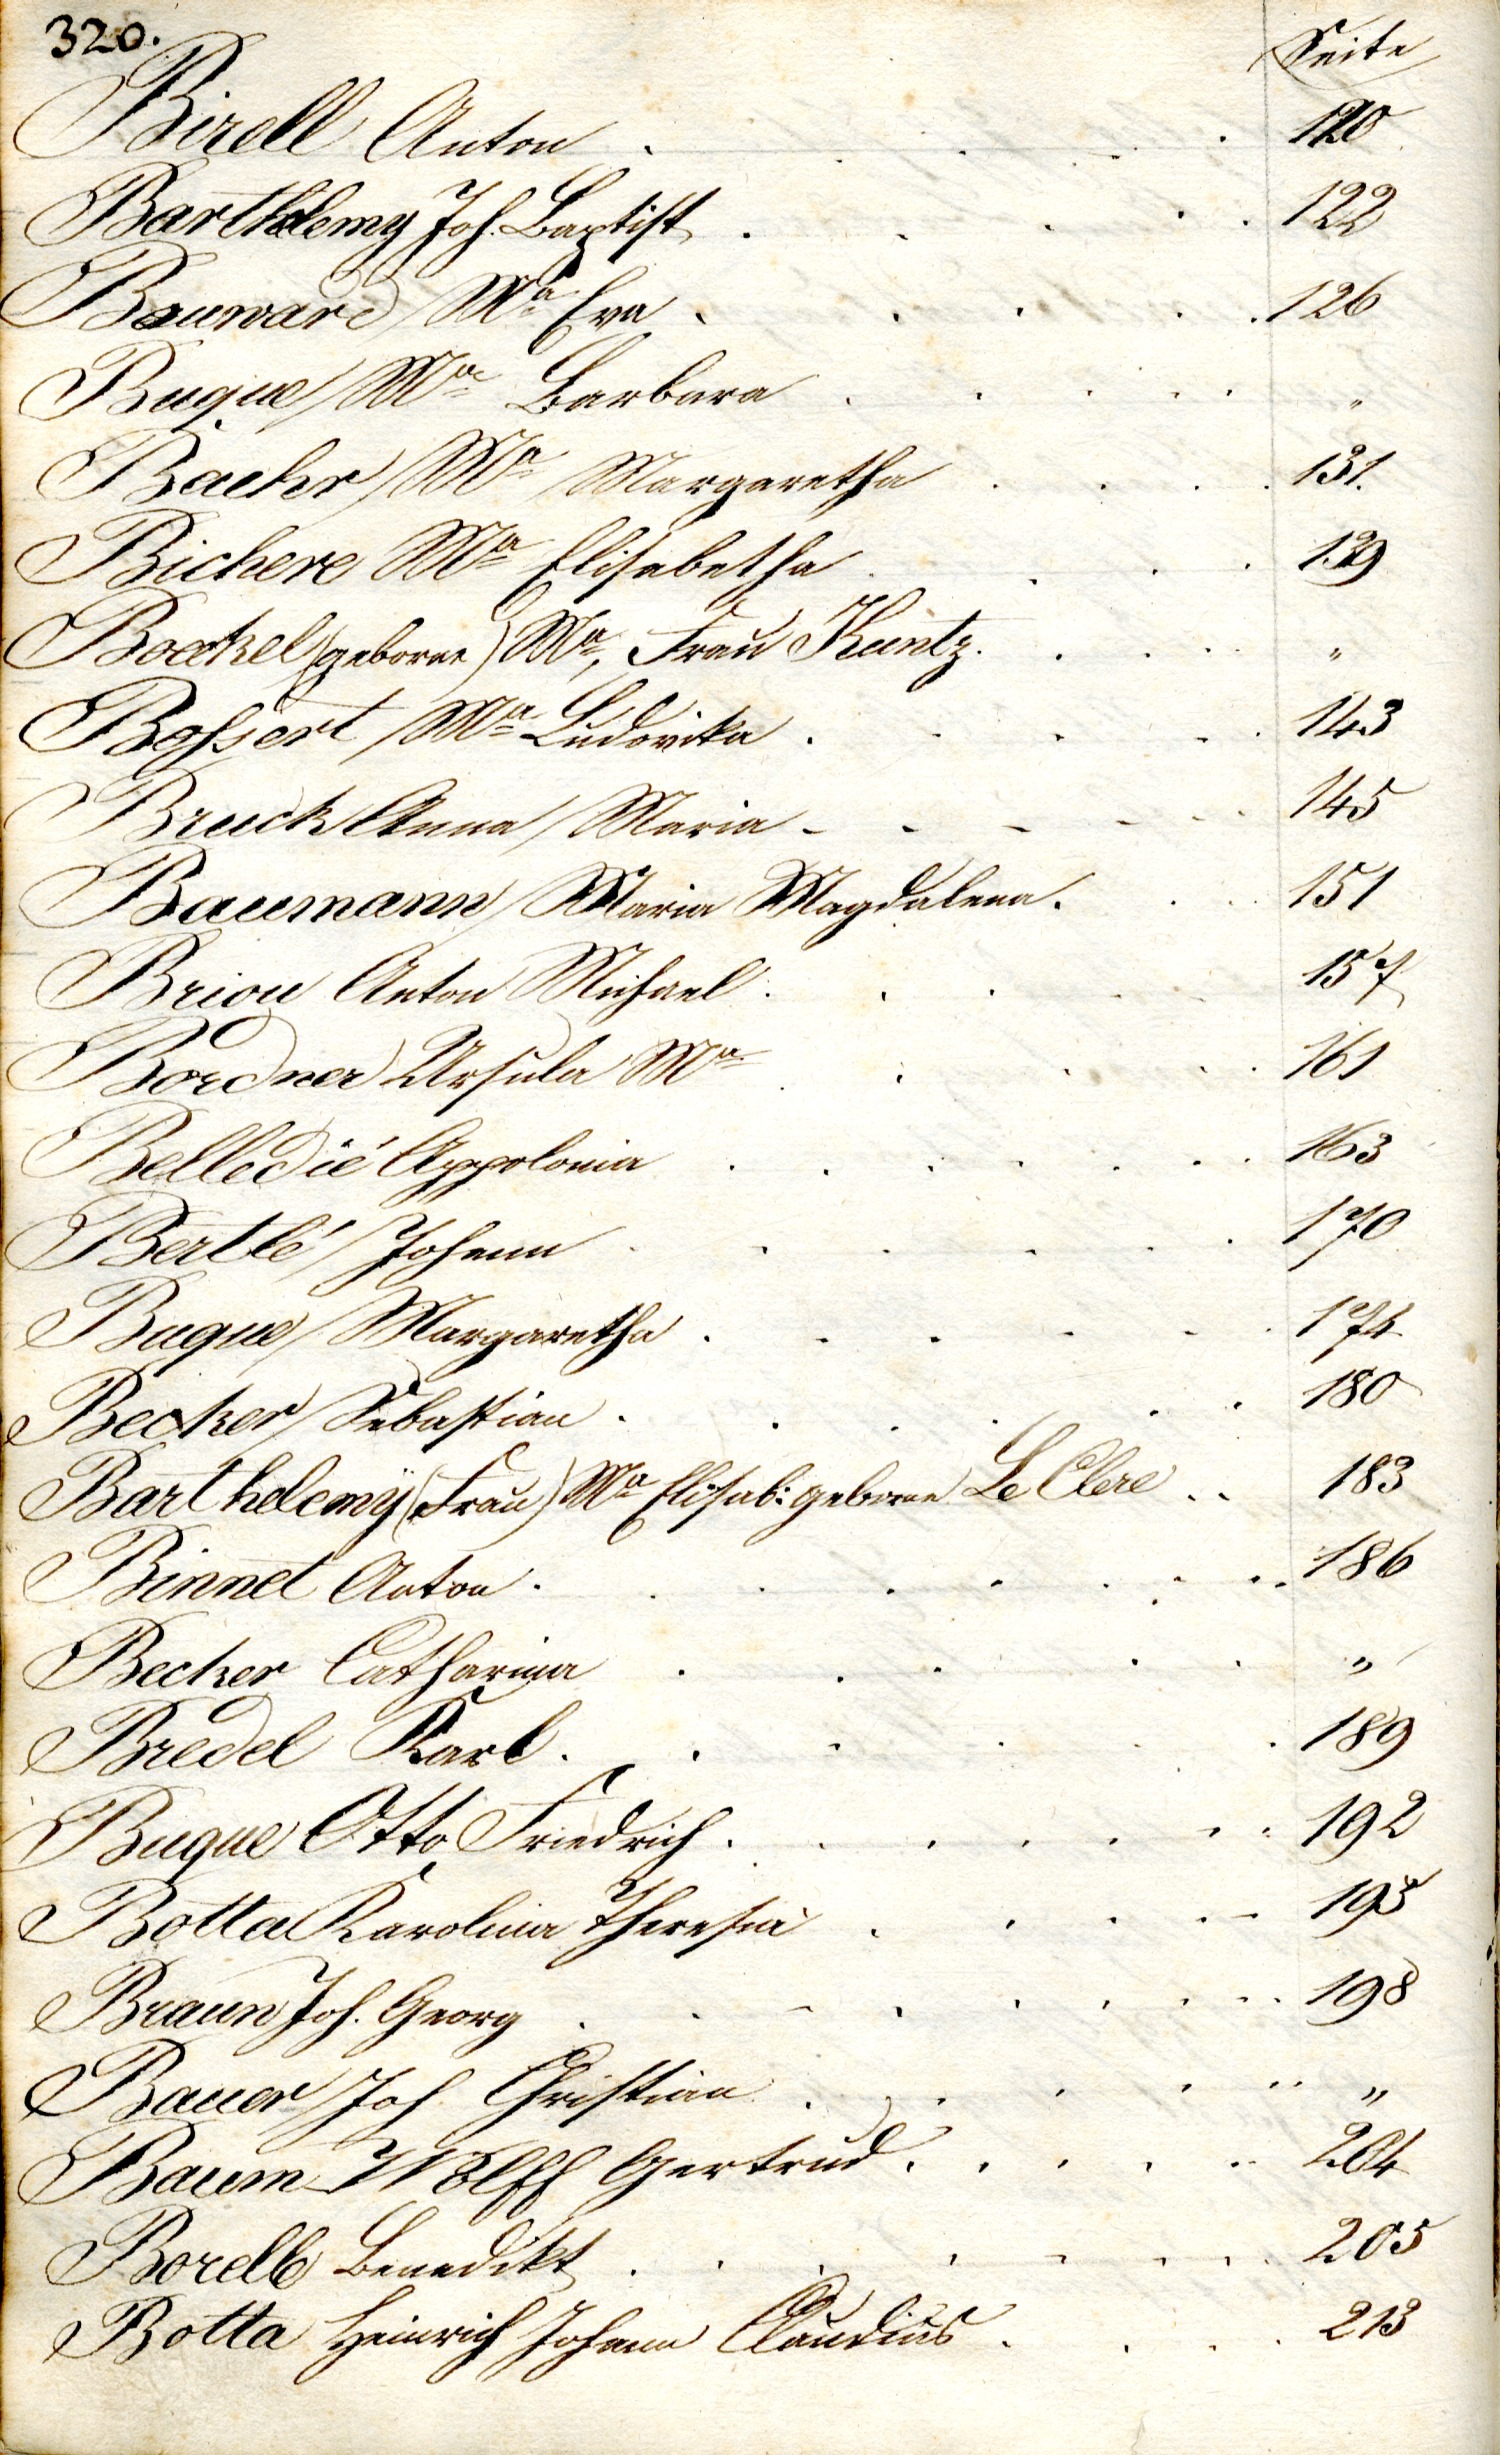 320.
Seite
Birell Anton . . . . . 120
Barthelemy Joh. Baptist . . . . . 122
Bauward Ma Eva . . . . . 126
Buque Ma Barbara . . . . . "
Baehr Ma Margaretha . . . . 131.
Bichere Ma Elisabetha . . . . 139
Boeckel (geborne) Ma, Frau Kuntz . . . . "
Bossert Ma Ludovika . . . . . 143
Bruck Anna Maria . . . . . 145
Baumann Maria Magdalena . . . 151
Briou Anton Michael . . . . . 157
Bordner Ursula Ma . . . . . 161
Belledié Appolonia . . . . . 163
Bertlé Johann . . . . . 170
Buque Margaretha . . . . . 174
Becker Sebastian . . . . . 180
Barthelemÿ (Frau) Ma Elisab: geborne Le Clere . . 183
Binnet Anton . . . . . 186
Becker Catharina . . . . . "
Bredel Karl . . . . . 189
Buque Otto Friedrich . . . . . 192
Botta Karolina Theresia . . . . 195
Braun Joh. Georg . . . . . 198
Bauer Joh Christian . . . . . "
Baum Wolff Gertrud . . . . . 204
Borell Benedikt . . . . . 205
Botta Heinrich Johann Claudius . . . . 213